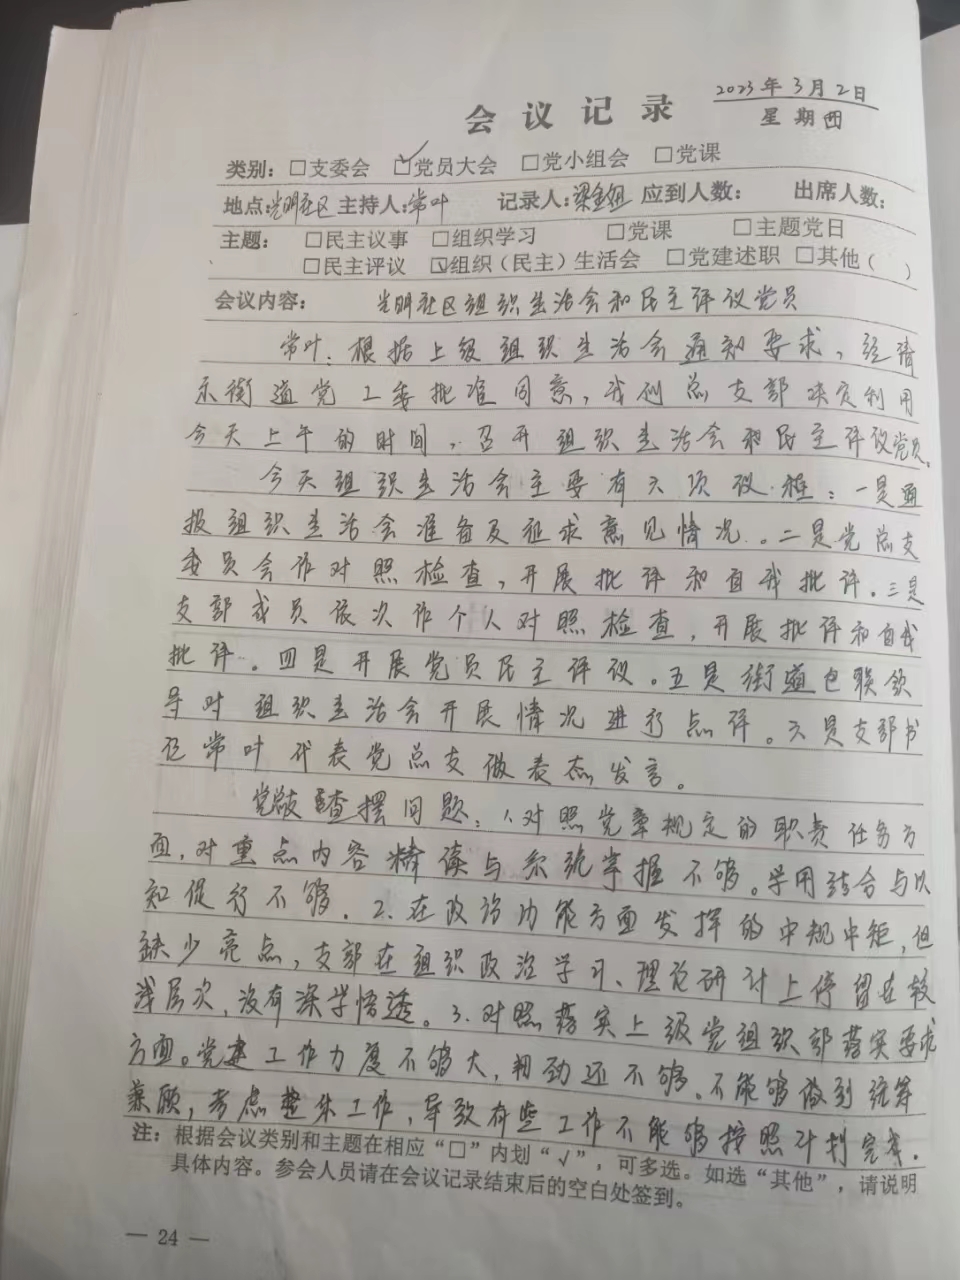 2023年3月2日
会议记录
星期四
类别：□支委会 ☑党员大会 □党小组会 □党课
地点：光明社区 主持人：常叶 记录人：梁 应到人数： 出席人数：
主题： □民主议事 □组织学习 □党课 □主题党日
□民主评议 ☑组织（民主）生活会 □党建述职 □其他（ ）
会议内容： 光明社区组织生活会和民主评议党员
常叶：根据上级组织生活会通知要求，经请
示街道党工委批准同意，我们总支部决定利用
今天上午的时间，召开组织生活会和民主评议党员。
今天组织生活会主要有六项议程：一是通
报组织生活会准备及征求意见情况。二是党总支
委员会作对照检查，开展批评和自我批评。三是
支部成员依次作个人对照检查，开展批评和自我
批评。四是开展党员民主评议。五是街道包联领
导对组织生活会开展情况进行点评。六是支部书
记常叶代表党总支做表态发言。
党总支查摆问题：1、对照党章规定的职责任务方
面，对重点内容精读与系统掌握不够。学用结合与以
知促行不够。2.在政治功能方面发挥的中规中矩，但
缺少亮点，支部在组织政治学习、理论研讨上停留在较
浅层次，没有深学悟透。3.对照落实上级党组织部落实要求
方面。党建工作力度不够大，主动还不够，不能够做到统筹
兼顾，考虑整体工作，导致有些工作不能够按照计划完成。
注：根据会议类别和主题在相应“□”内划“√”，可多选。如选“其他”，请说明
具体内容。参会人员请在会议记录结束后的空白处签到。
— 24 —